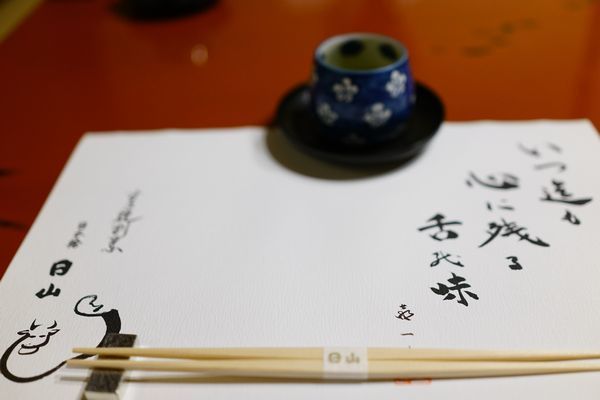 いつ迄も
心に残る
舌の味
日山
日山